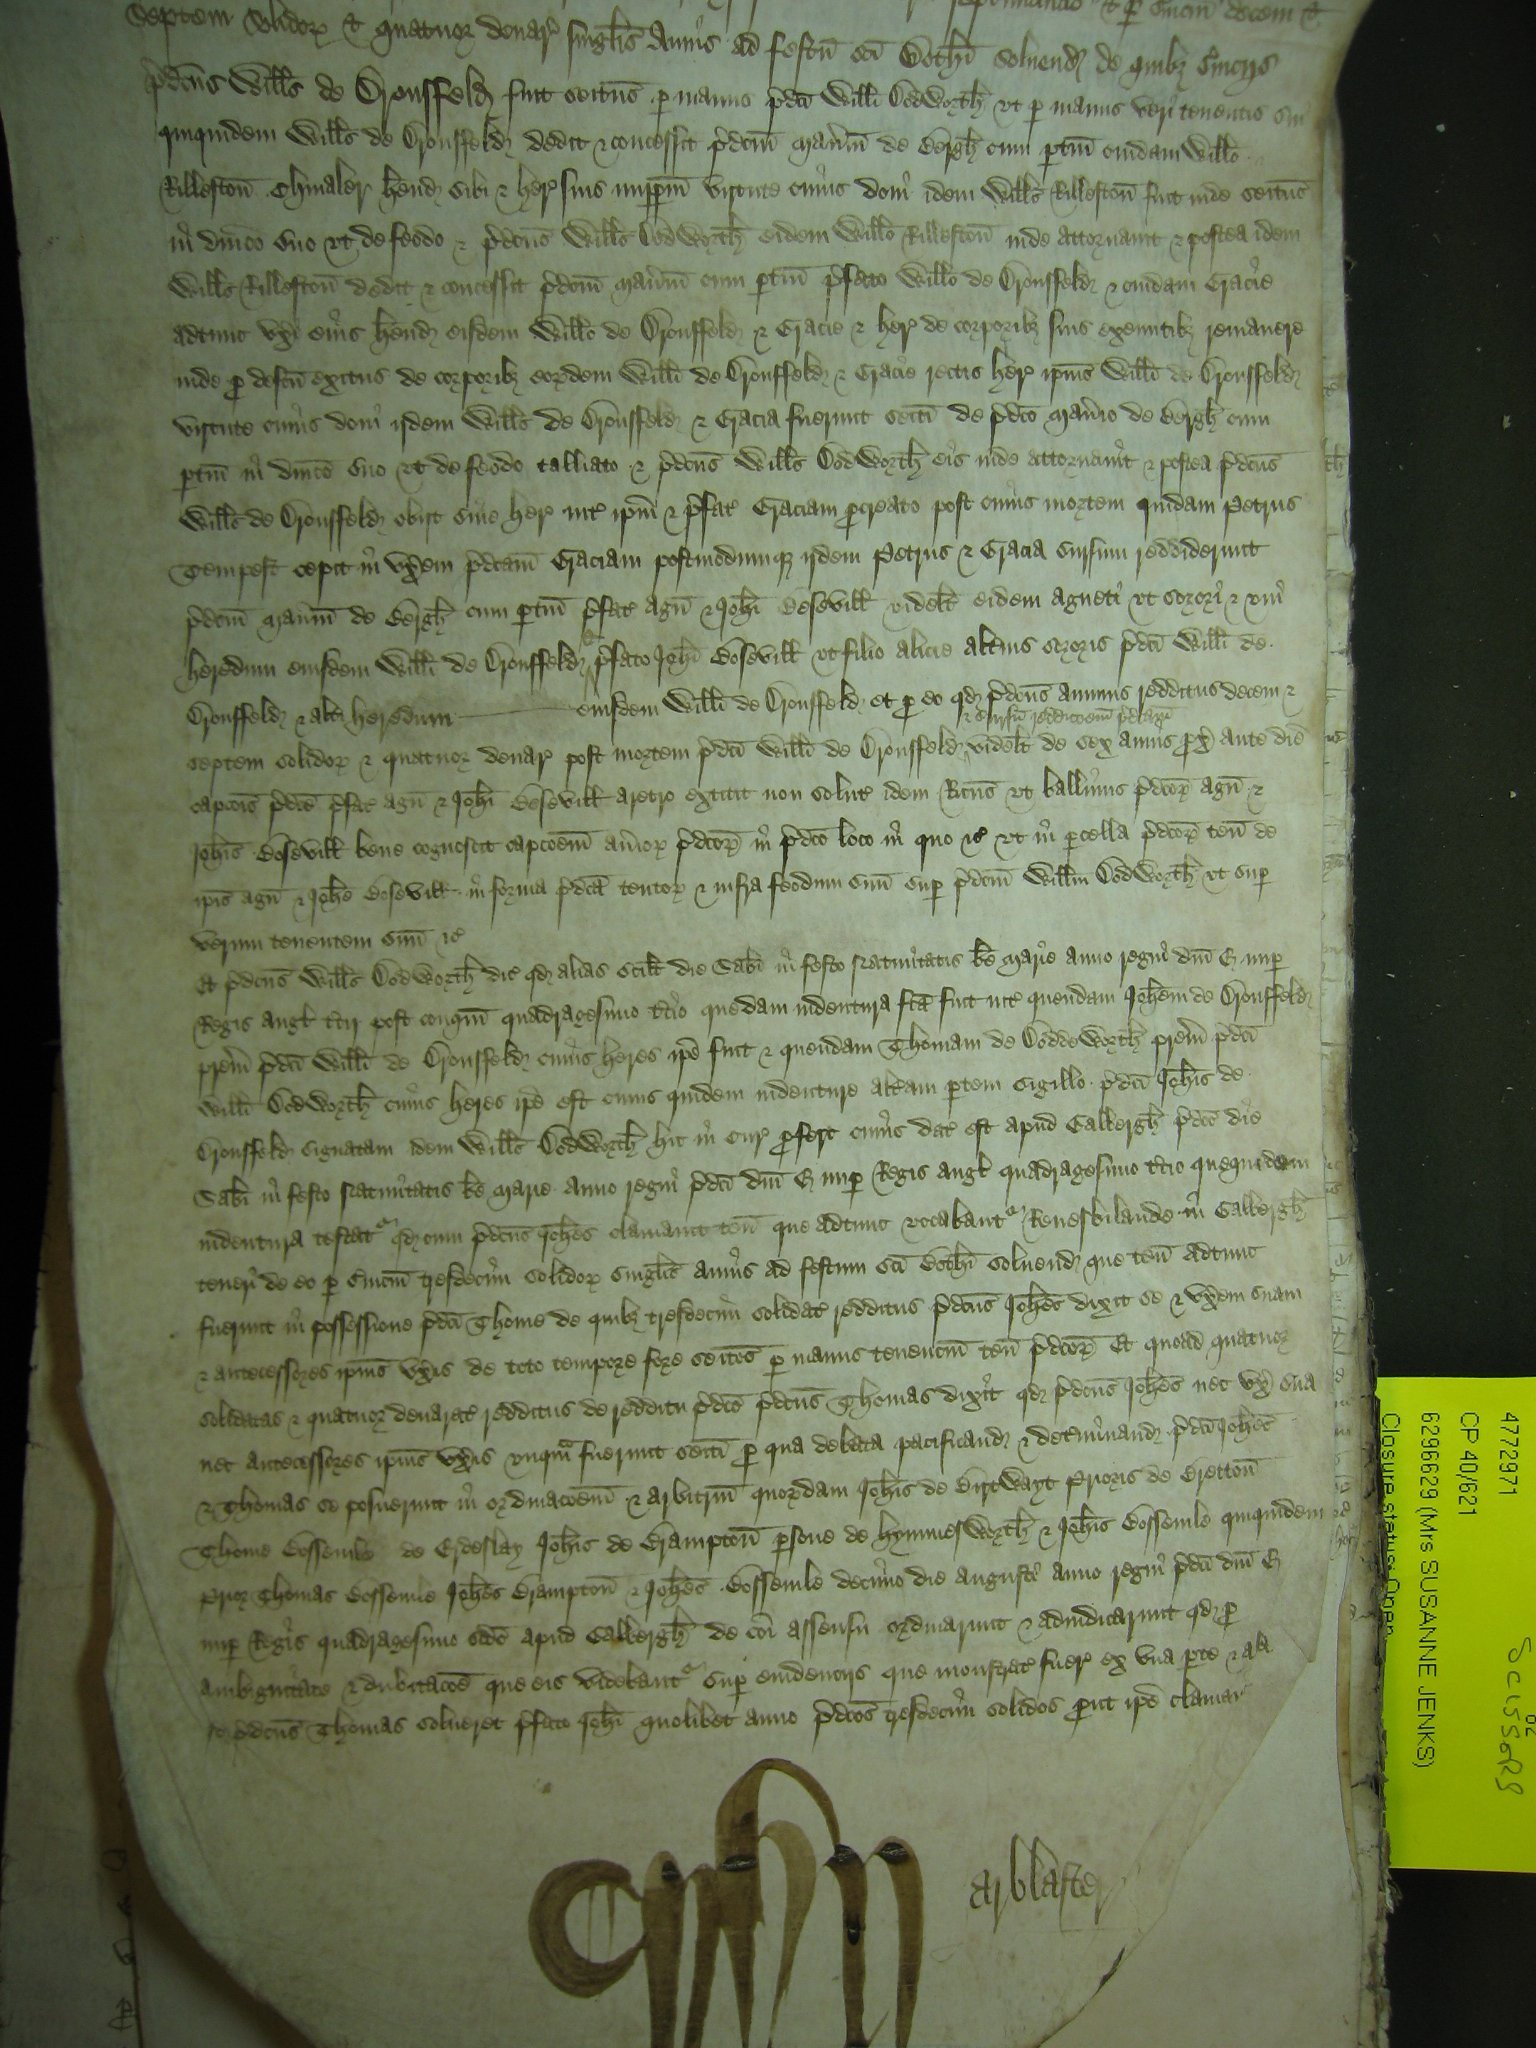 septem solidor' & quatuor denar' singulis Annis ad festu' s'ci Both'i soluend' de quib' s'uicijs
p'dcus Will's de Dronsfeld fuit seitus p' manus p'd'ci Will'i Codworth vt p' manus veri tenentis sui
qui quidem Will's de Dronsfeld dedit & concessit p'dcm Man'iu' de Bergh cum p'tin' cuidam Will'o
Rilleston Chiualer h'end' sibi & her' suis imp'p'm virtute cuius doni idem Will's Rilleston fuit inde seitus
in d'nico suo vt de feodo & p'dcus Will's Codworth eidem Will'o Rilleston inde attornauit & postea idem
Will's Rilleston dedit & concessit p'dcm Man'iu' cum p'tin' p'fato Will'o de Dronsfeld & cuidam Gracie
adtunc vx'i eius h'end' eisdem Will'o de Dronsfeld & Gracie & her' de corporib' suis exeuntib' remanere
inde p' defcu' exitus de corporib' eordem Will'i de Dronsfeld & Gracie rectis her' ip'ius Will'i de Dronsfeld
virtute cuius doni ijdem Will's de Dronsfeld & Gracia fuerunt seiti de p'd'co Man'io de Bergh cum
p'tin' in d'nico suo vt de feodo talliato & p'dcus Will's Codworth eis inde attornauit & postea p'dcus
Will's de Dronsfeld obijt sine her' int' ip'm & p'fat' Graciam p'creato post cuius mortem quidam Petrus
Tempest cepit in vx'em p'dcam Graciam postmodumq' ijdem Petrus & Gracia sursum reddiderunt
p'dcm Man'iu' de Bergh cum p'tin' p'fat' Agn' & Joh'i Bosevill videl't eidem Agneti vt sorori & vni
heredum eiusdem Will'i de Dronsfeld & p'fato Joh'i Bosevill vt filio Alicie alt'ius sororis p'd'ci Will'i de
Dronsfeld & alt'i heredum eiusdem Will'i de Dronsfeld et p' eo qd' p'dcus annuus redditus decem &
& sursu' reddicoem p'dcam
septem solidor' & quatuor denar' post mortem p'd'ci Will'i de Dronsfeld videl't de sex annis p'x' ante die'
capc'ois p'd'ce p'fat' Agn' & Joh'i Bosevill aretro extitit non solut' idem Ric'us vt balliuus p'dcor' Agn' &
Joh'is Bosevill bene cognoscit capcoem au'ior' p'dcor' in p'd'co loco in quo &c' vt in p'cella p'dcor' ten' de
ip'is Agn' & Joh'e Bosevill in forma p'dca tentor' & infra feodum suu' sup' p'dcm Will'm Codworth vt sup'
verum tenentem suu' &c'
Et p'dcus Will's Codworth dic' qd' alias scil't die Sab'i in festo Natiuitatis b'e Marie anno regni d'ni E nup'
Regis Angl' t'cij post conqm' quadragesimo t'cio quedam indentura f'ca fuit int' quendam Joh'em de Dronsfeld
p'rem p'd'ci Will'i de Dronsfeld cuius heres ip'e fuit & quendam Thomam de Coddeworth p'rem p'd'ci
Will'i Codworth cuius heres ip'e est cuius quidem indenture alt'am p'tem sigillo p'd'ci Joh'is de
Dronsfeld signatam idem Will's Codworth hic in cur' p'fert cuius dat' est apud Calbergh p'd'co die
Sab'i in festo Natiuitatis b'e Marie anno regni p'd'ci d'ni E nup' Regis Angl' quadragesimo t'cio quequidem
indentura testat' qd' cum p'dcus Joh'es clamauit ten' que adtunc vocabant' Reneskilande in Calbergh
teneri de eo p' s'uiciu' tresdecim solidor' singulis annis ad festum s'ci Both'i soluend' que ten' adtunc
fuerunt in possessione p'd'ci Thome de quib' tresdecim solidat' redditus p'dcus Joh'es dixit se & vx'em suam
& antecessores ip'ius vx'is de toto tempore fore seitos p' manus tenenciu' ten' p'dcor' Et quoad quatuor
solidatas & quatuor denarat' redditus de redditu p'd'co p'dcus Thomas dixit qd' p'dcus Joh'es nec vx' sua
nec antecessores ip'ius vx'is vnqm' fuerunt seiti p' qua debata pacificand' & det'minand' p'd'ci Joh'es
& Thomas se posuerunt in ordinacoem & arbitriu' quordam Joh'is de Birtwayt Prioris de Bretton
Thome Bosseuile de Erdeslay Joh'is de Brampton p'sone de Hymmesworth & Joh'is Bosseuile qui quidem
Prior Thomas Bosseuile Joh'es Brampton & Joh'es Bosseuile decimo die Augusti anno regni p'd'ci d'ni E
nup' Regis quadragesimo s'cdo apud Calbergh de co'i assensu ordinarunt & adiudicarunt qd' p'
ambiguitate & dubitacoe que eis videbant' sup' euidencijs que monstrat' fuer' ex vna p'te & al'
p'dcus Thomas solueret p'fato Joh'i quolibet anno p'dcos tresdecim solidos p'ut ip'e clamau'
arblaster
4772971
CP 40/621
6296629 (Mrs SUSANNE JENKS)
Closure status: Open
SCISSORS